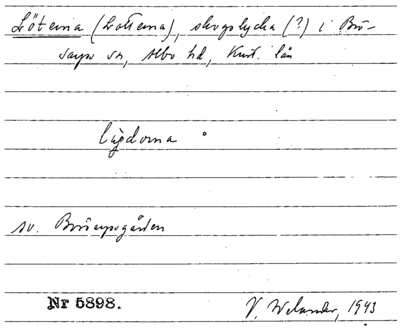 Lötena (Lottena), skogslycka (?) i Brö-
sarps sn, Albo hd, Krist. län
sv. Brösarpsgården
Nr 5898.
V. Welander, 1943